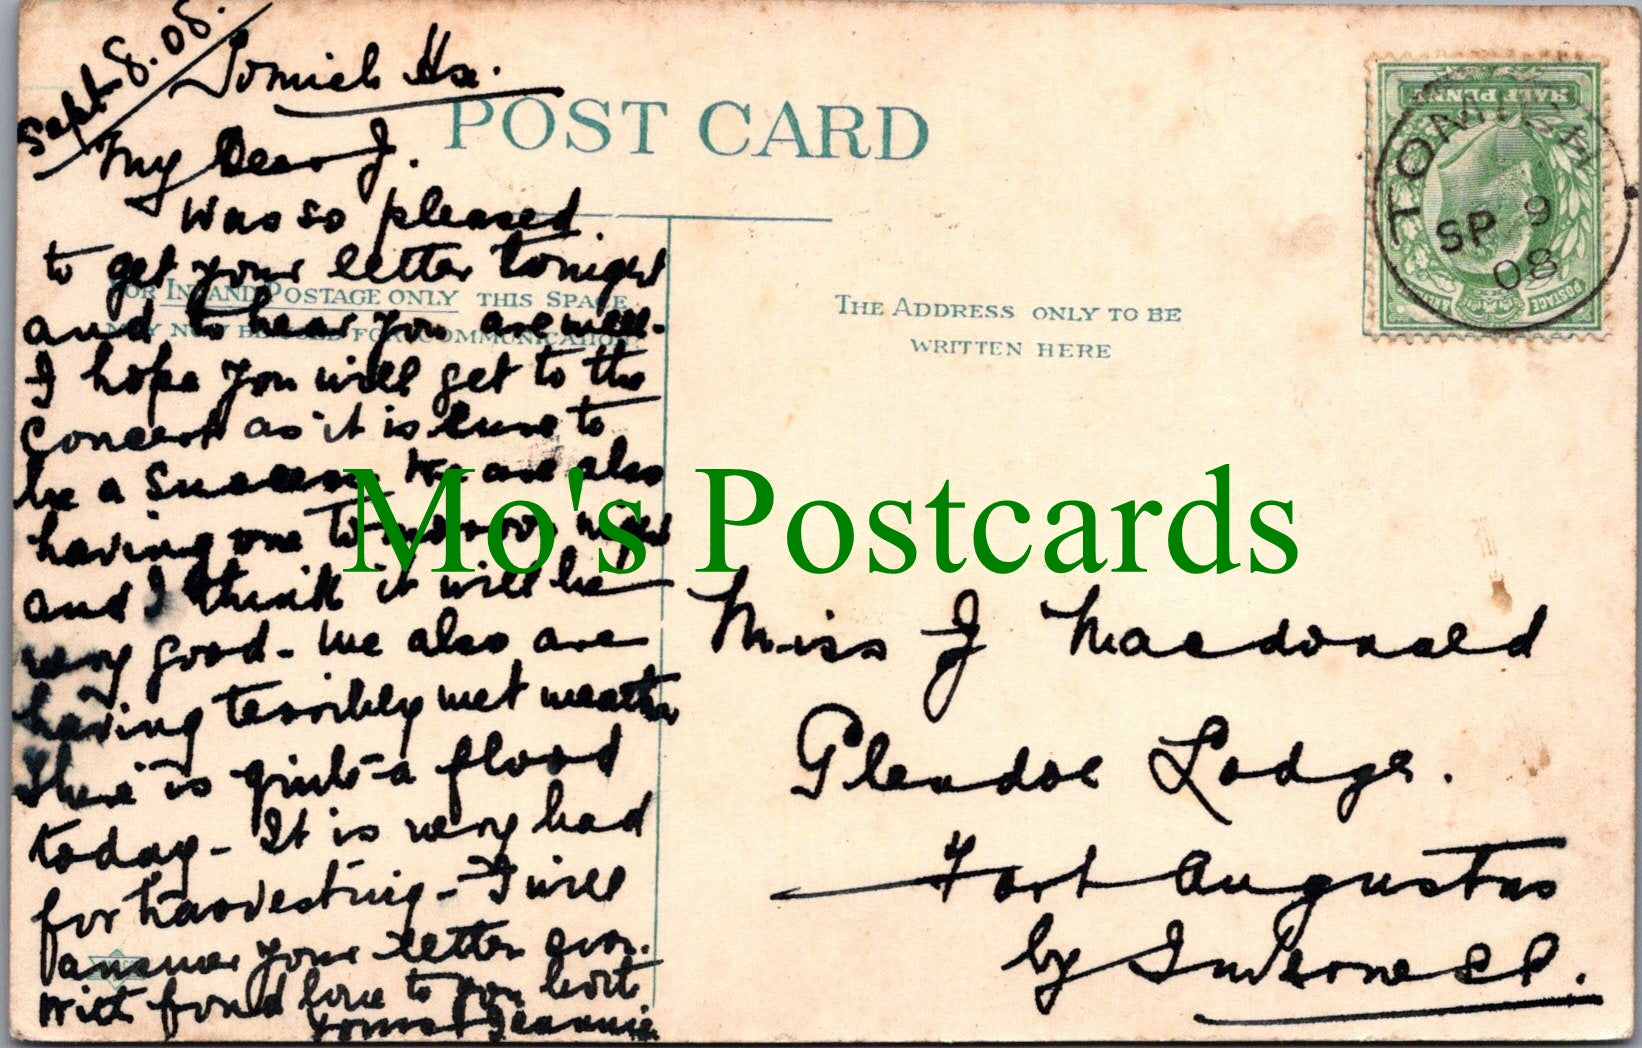 Sept. 8. 08.
Tomich Ho.
My Dear J.
Was so pleased
to get your letter tonight
and to hear you are well.
I hope you will get to the
Concert as it is sure to
be a Success. We are also
having one to-morrow night
and I think it will be
very good - We also are
having terribly wet weather
There is quite a flood
today - It is very bad
for harvesting - I will
answer your letter soon.
With fond love to you both
yours Jeannie
POST CARD
FOR INLAND POSTAGE ONLY THIS SPACE
MAY NOW BE USED FOR COMMUNICATION
THE ADDRESS ONLY TO BE
WRITTEN HERE
HALF PENNY
POSTAGE
TOMICH
SP 9
08
Mo's Postcards
Miss J Macdonald
Glendoe Lodge.
Fort Augustus
by Inverness.